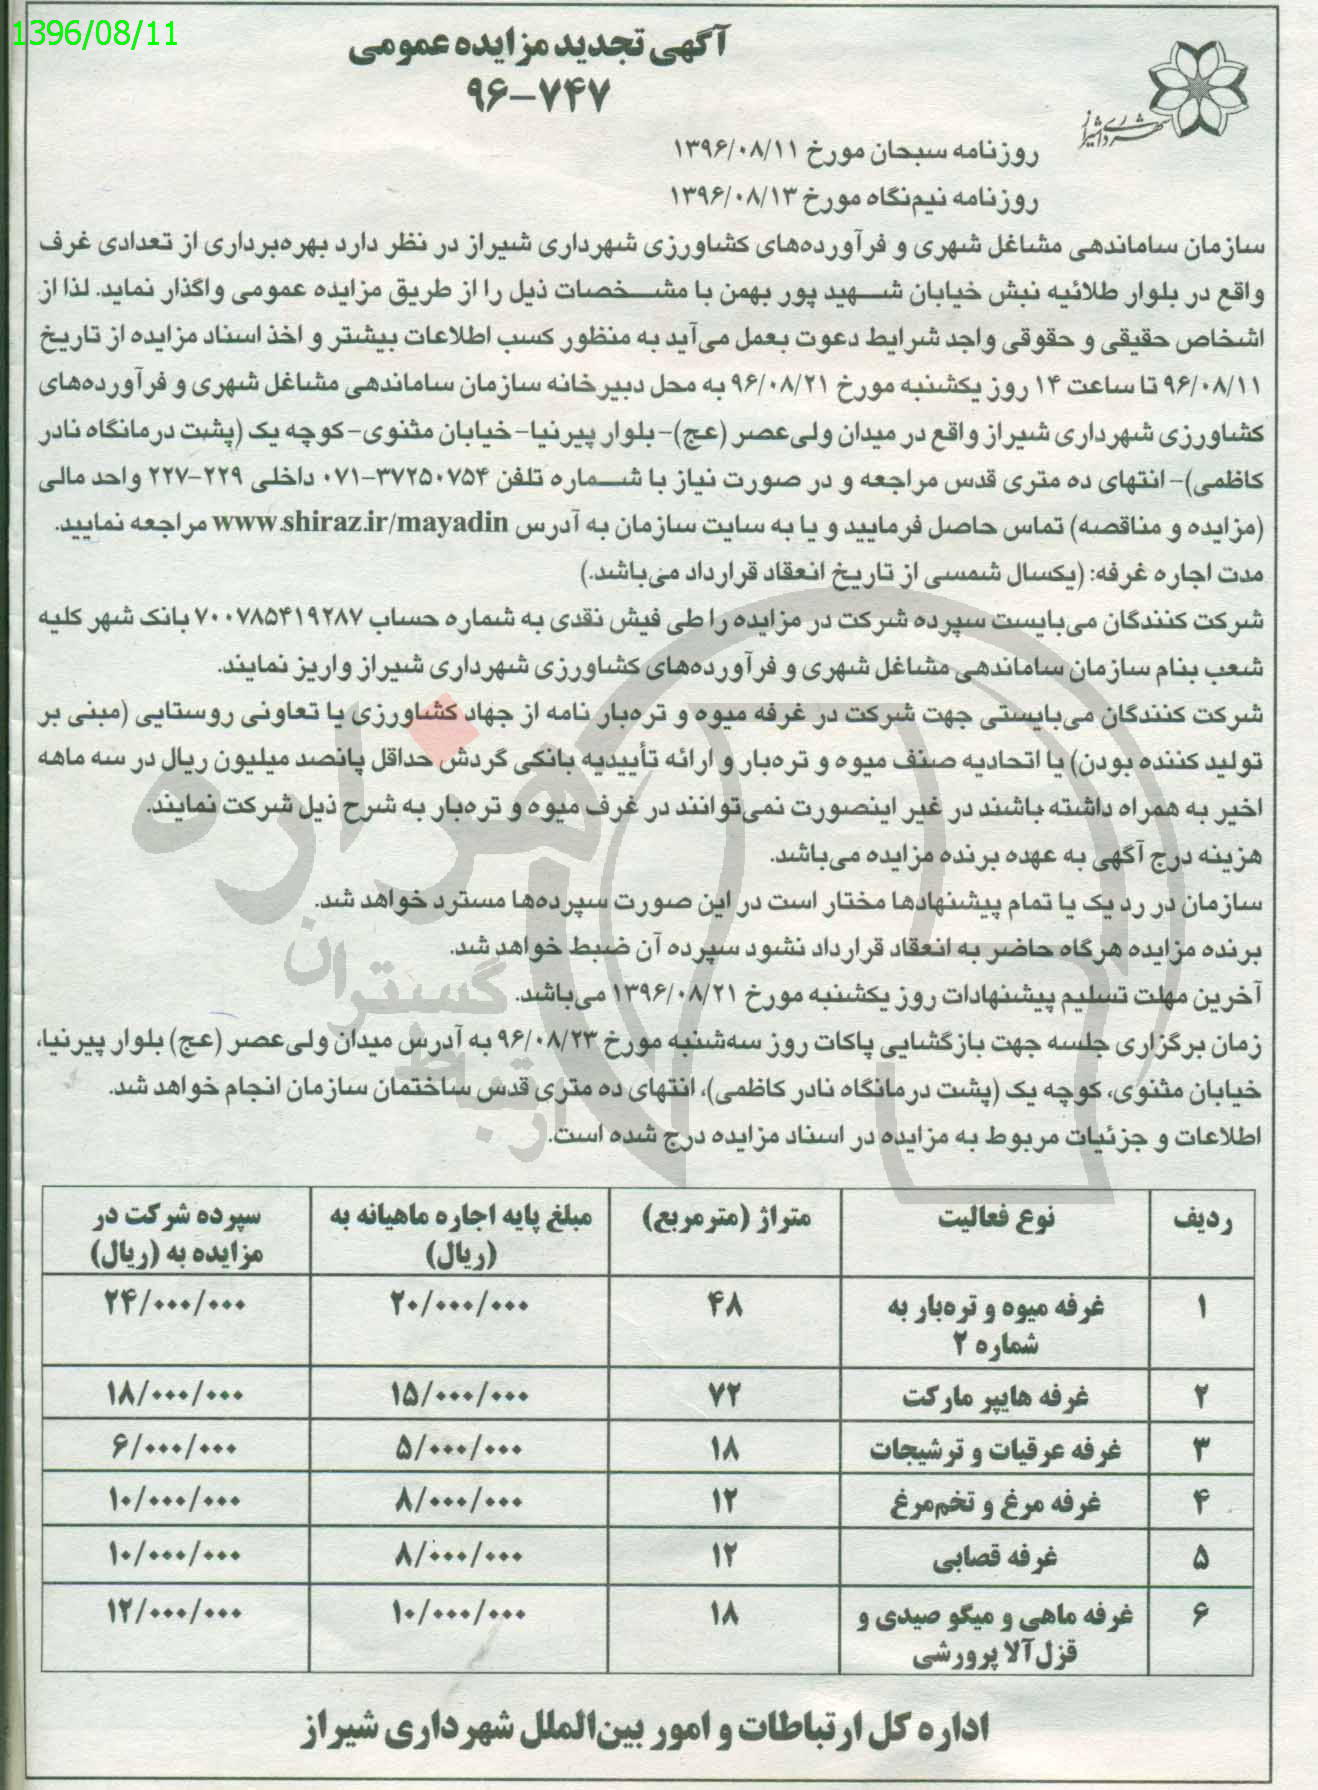 1396/08/11
آگهی تجدید مزایده عمومی
۹۶-۷۴۷
شهرداری شیراز
روزنامه سبحان مورخ ۱۳۹۶/۰۸/۱۱
روزنامه نیم‌نگاه مورخ ۱۳۹۶/۰۸/۱۳
سازمان ساماندهی مشاغل شهری و فرآورده‌های کشاورزی شهرداری شیراز در نظر دارد بهره‌برداری از تعدادی غرف
واقع در بلوار طلائیه نبش خیابان شهید پور بهمن با مشخصات ذیل را از طریق مزایده عمومی واگذار نماید. لذا از
اشخاص حقیقی و حقوقی واجد شرایط دعوت بعمل می‌آید به منظور کسب اطلاعات بیشتر و اخذ اسناد مزایده از تاریخ
۹۶/۰۸/۱۱ تا ساعت ۱۴ روز یکشنبه مورخ ۹۶/۰۸/۲۱ به محل دبیرخانه سازمان ساماندهی مشاغل شهری و فرآورده‌های
کشاورزی شهرداری شیراز واقع در میدان ولی‌عصر (عج)- بلوار پیرنیا- خیابان مثنوی- کوچه یک (پشت درمانگاه نادر
کاظمی)- انتهای ده متری قدس مراجعه و در صورت نیاز با شماره تلفن ۳۷۲۵۰۷۵۴-۰۷۱ داخلی ۲۲۹-۲۲۷ واحد مالی
(مزایده و مناقصه) تماس حاصل فرمایید و یا به سایت سازمان به آدرس www.shiraz.ir/mayadin مراجعه نمایید.
مدت اجاره غرفه: (یکسال شمسی از تاریخ انعقاد قرارداد می‌باشد.)
شرکت کنندگان می‌بایست سپرده شرکت در مزایده را طی فیش نقدی به شماره حساب ۷۰۰۷۸۵۴۱۹۲۸۷ بانک شهر کلیه
شعب بنام سازمان ساماندهی مشاغل شهری و فرآورده‌های کشاورزی شهرداری شیراز واریز نمایند.
شرکت کنندگان می‌بایستی جهت شرکت در غرفه میوه و تره‌بار نامه از جهاد کشاورزی یا تعاونی روستایی (مبنی بر
تولید کننده بودن) یا اتحادیه صنف میوه و تره‌بار و ارائه تأییدیه بانکی گردش حداقل پانصد میلیون ریال در سه ماهه
اخیر به همراه داشته باشند در غیر اینصورت نمی‌توانند در غرف میوه و تره‌بار به شرح ذیل شرکت نمایند.
هزینه درج آگهی به عهده برنده مزایده می‌باشد.
سازمان در رد یک یا تمام پیشنهادها مختار است در این صورت سپرده‌ها مسترد خواهد شد.
برنده مزایده هرگاه حاضر به انعقاد قرارداد نشود سپرده آن ضبط خواهد شد.
آخرین مهلت تسلیم پیشنهادات روز یکشنبه مورخ ۱۳۹۶/۰۸/۲۱ می‌باشد.
زمان برگزاری جلسه جهت بازگشایی پاکات روز سه‌شنبه مورخ ۹۶/۰۸/۲۳ به آدرس میدان ولی‌عصر (عج) بلوار پیرنیا،
خیابان مثنوی، کوچه یک (پشت درمانگاه نادر کاظمی)، انتهای ده متری قدس ساختمان سازمان انجام خواهد شد.
اطلاعات و جزئیات مربوط به مزایده در اسناد مزایده درج شده است.
هزاره
گستران
ارتباط
ردیف نوع فعالیت متراژ (مترمربع) مبلغ پایه اجاره ماهیانه به سپرده شرکت در
(ریال) مزایده به (ریال)
۱ غرفه میوه و تره‌بار به ۴۸ ۲۰/۰۰۰/۰۰۰ ۲۴/۰۰۰/۰۰۰
شماره ۲
۲ غرفه هایپر مارکت ۷۲ ۱۵/۰۰۰/۰۰۰ ۱۸/۰۰۰/۰۰۰
۳ غرفه عرقیات و ترشیجات ۱۸ ۵/۰۰۰/۰۰۰ ۶/۰۰۰/۰۰۰
۴ غرفه مرغ و تخم‌مرغ ۱۲ ۸/۰۰۰/۰۰۰ ۱۰/۰۰۰/۰۰۰
۵ غرفه قصابی ۱۲ ۸/۰۰۰/۰۰۰ ۱۰/۰۰۰/۰۰۰
۶ غرفه ماهی و میگو صیدی و ۱۸ ۱۰/۰۰۰/۰۰۰ ۱۲/۰۰۰/۰۰۰
قزل‌آلا پرورشی
اداره کل ارتباطات و امور بین‌الملل شهرداری شیراز